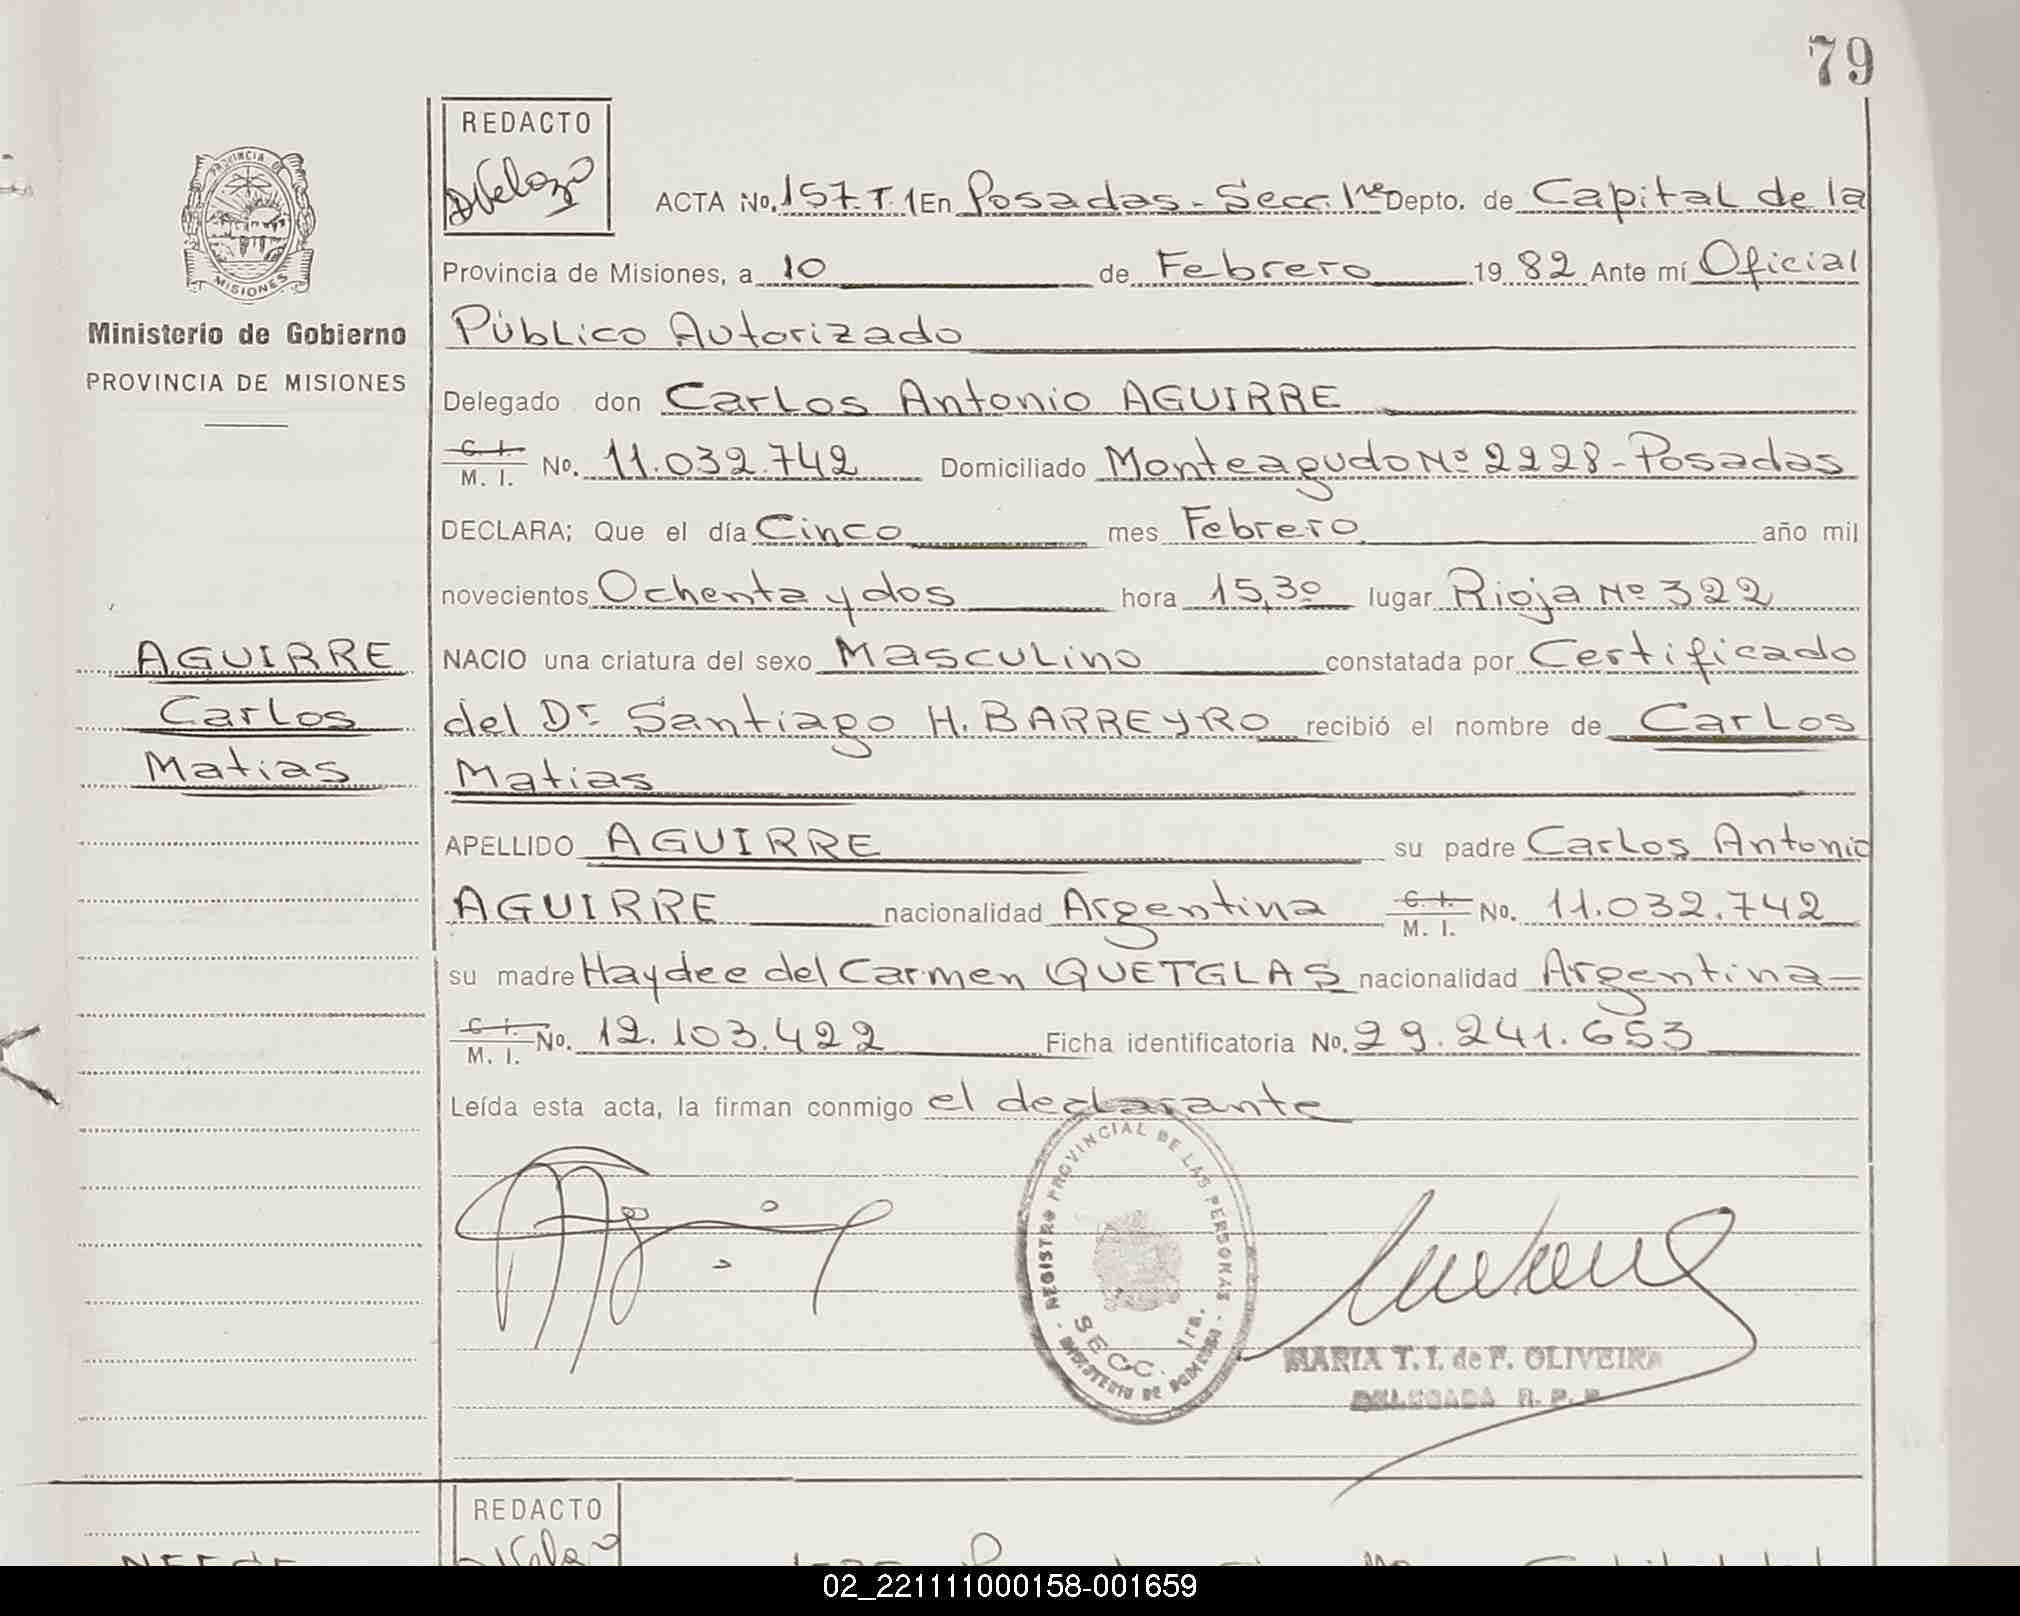 79
REDACTO
PROVINCIA DE
MISIONES
Ministerio de Gobierno
PROVINCIA DE MISIONES
ACTA No. 157. T. 1 En Posadas - Secc. 1ra Depto. de Capital de la
Provincia de Misiones, a 10 de Febrero 1982 Ante mí Oficial
Público Autorizado
Delegado don Carlos Antonio AGUIRRE
C. I. M. I. No. 11.032.742 Domiciliado Monteagudo Nº 2228 - Posadas
DECLARA; Que el día Cinco mes Febrero año mil
novecientos Ochenta y dos hora 15,30 lugar Rioja Nº 322
AGUIRRE
Carlos
Matias
NACIO una criatura del sexo Masculino constatada por Certificado
del Dr Santiago H. BARREYRO recibió el nombre de Carlos
Matias
APELLIDO AGUIRRE su padre Carlos Antonio
AGUIRRE nacionalidad Argentina C. I. M. I. No. 11.032.742
su madre Haydee del Carmen QUETGLAS nacionalidad Argentina
C. I. M. I. No. 12.103.422 Ficha identificatoria No. 29.241.653
Leída esta acta, la firman conmigo el declarante
- REGISTRO PROVINCIAL DE LAS PERSONAS -
SECC. 1ra.
MINISTERIO DE GOBIERNO
MARIA T. I. de F. OLIVEIRA
DELEGADA R. P. P.
REDACTO
02_221111000158-001659